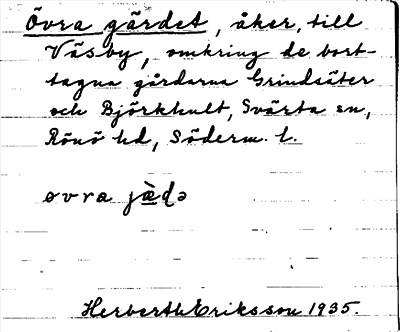 Övra gärdet, åker, till
Väsby, omkring de bort-
tagna gårdarna Grindsäter
och Björkhult, Svärta sn,
Rönö hd, Söderm. l.
øvra jæ̀ɖə
Herberth Eriksson 1935.